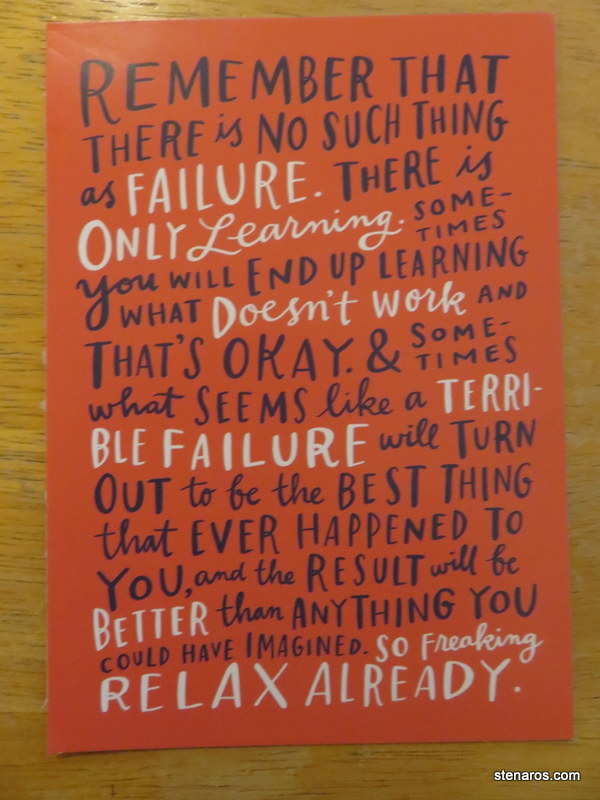 REMEMBER THAT
THERE is NO SUCH THING
as FAILURE. THERE is
ONLY Learning. SOME-
TIMES
you WILL END UP LEARNING
WHAT Doesn't work AND
THAT'S OKAY. & SOME-
TIMES
what SEEMS like a TERRI-
BLE FAILURE will TURN
OUT to be the BEST THING
that EVER HAPPENED TO
YOU, and the RESULT will be
BETTER than ANYTHING YOU
COULD HAVE IMAGINED. SO Freaking
RELAX ALREADY.
stenaros.com